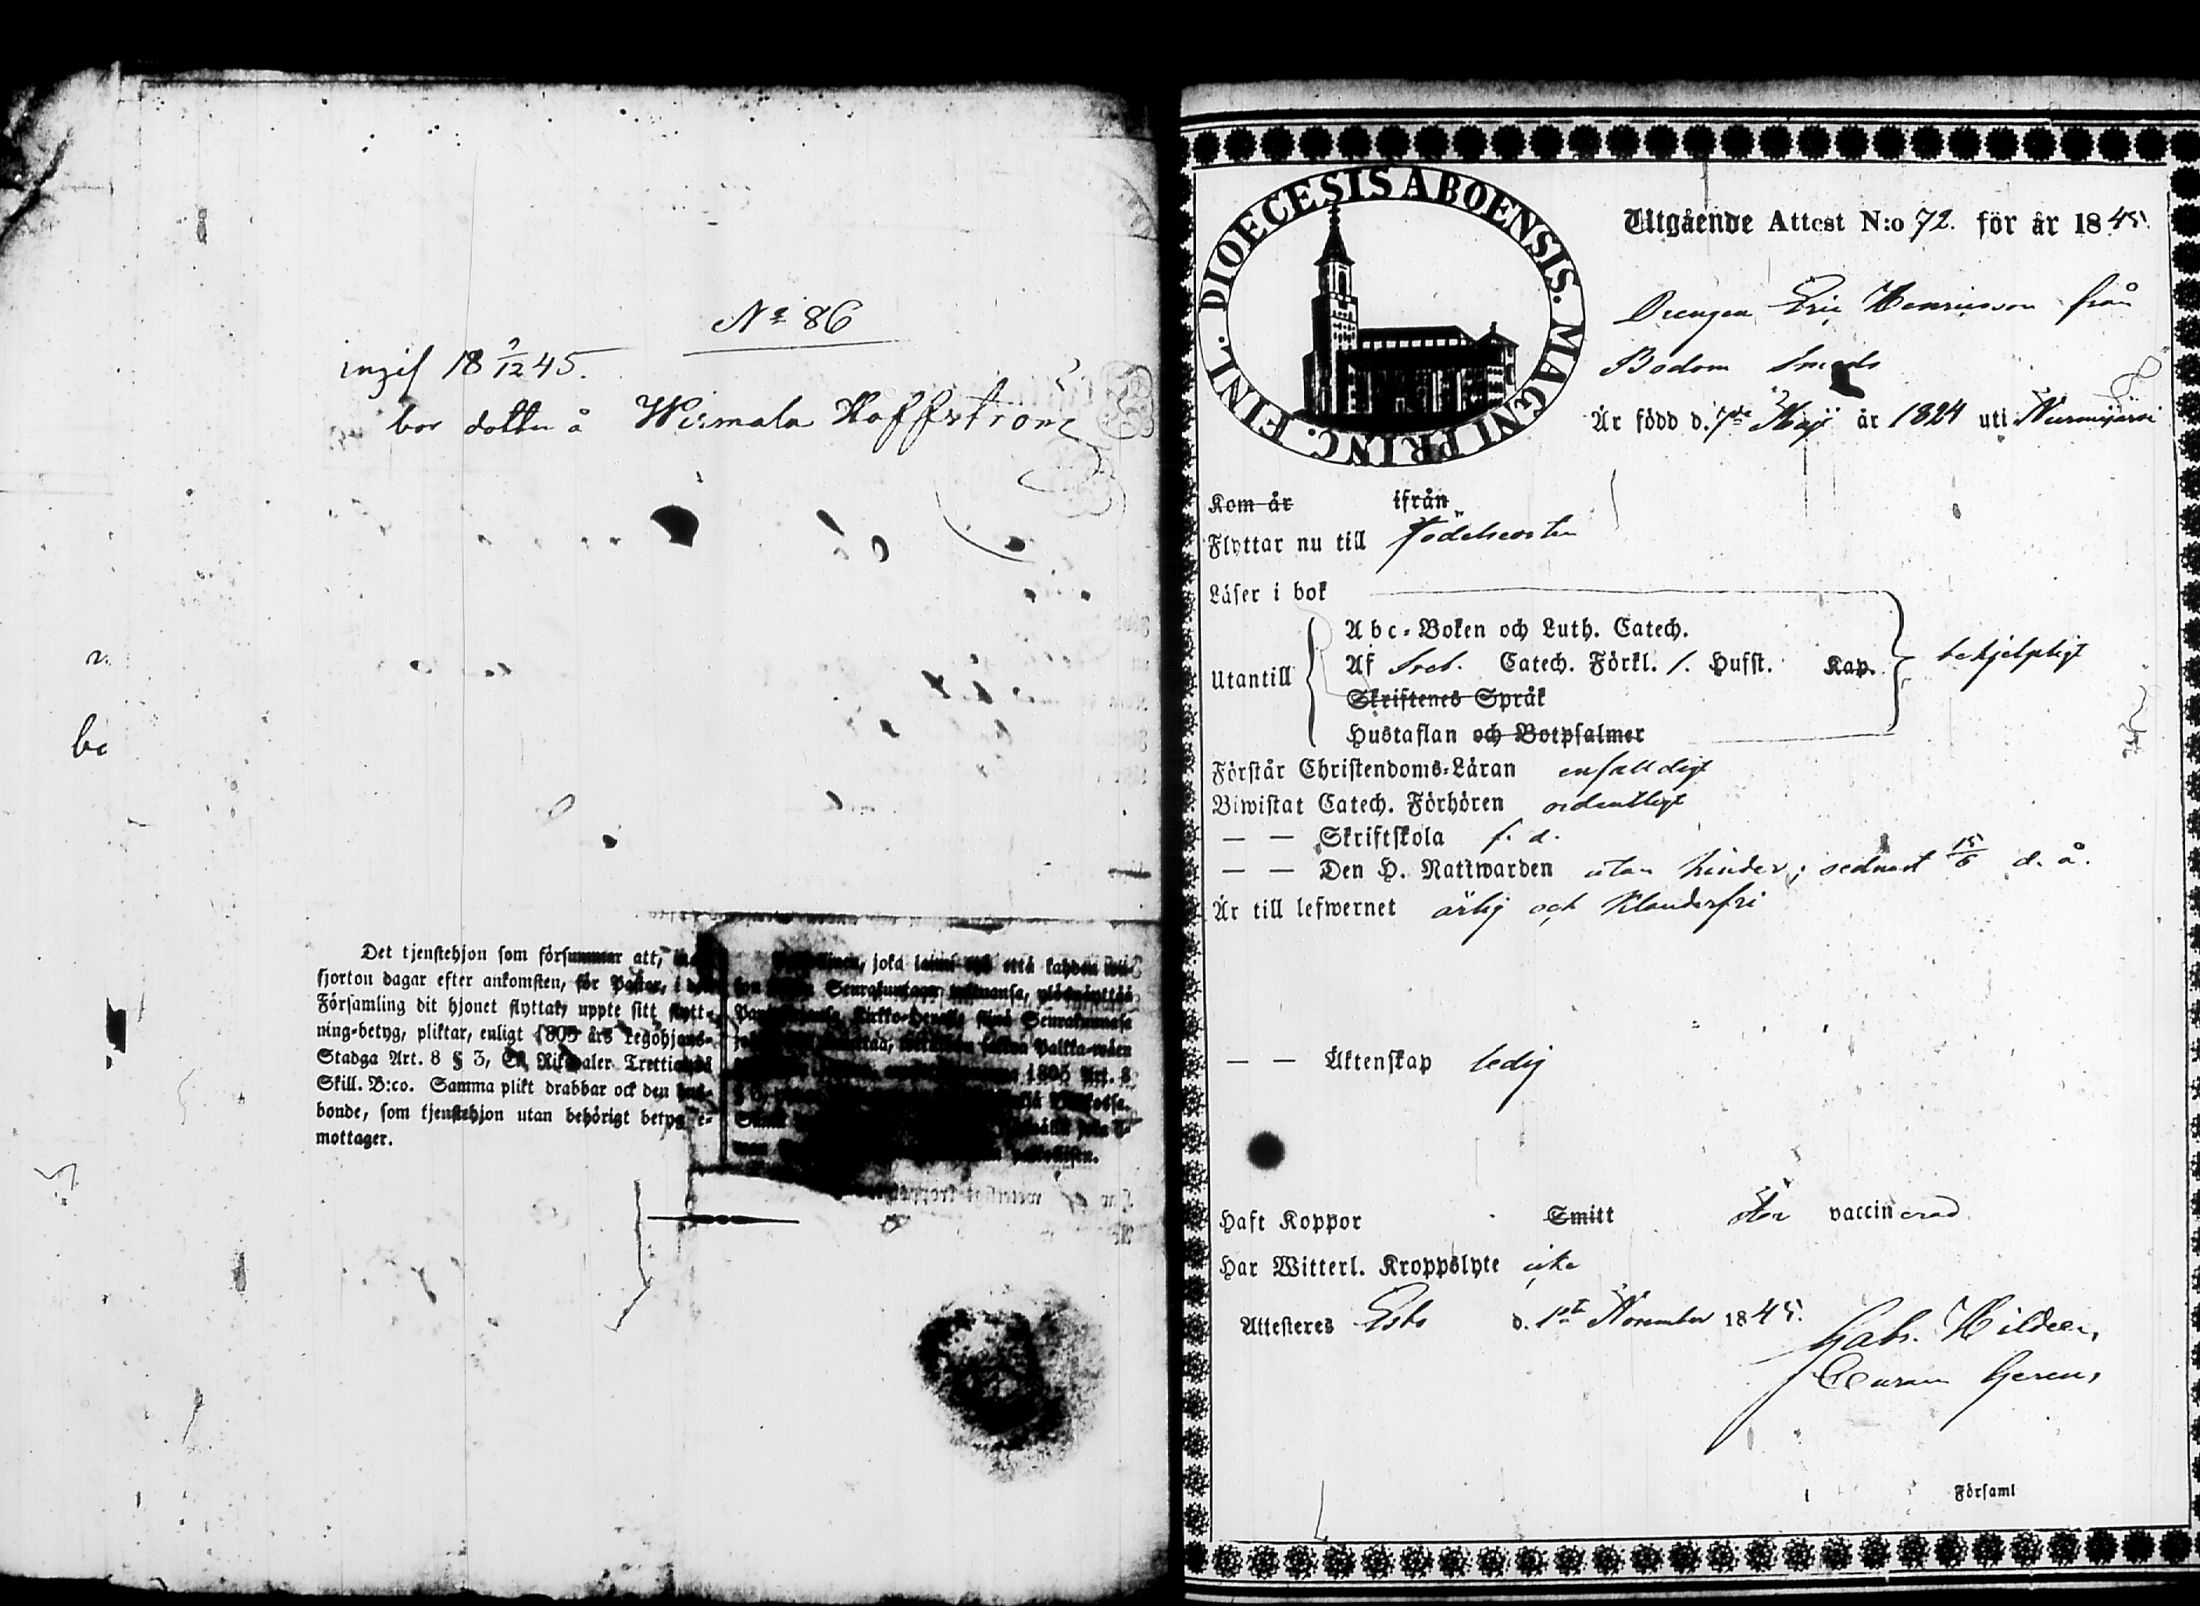 No 86
ingif 18 9/12 45.
bor dotter å Wermala Hoffström
Det tjenstehjon som försummar att,
fjorton dagar efter ankomsten, för Pastor, i
Församling dit hjonet flyttat, uppte sitt flytt-
ning-betyg, pliktar, enligt 1805 års Legohjons-
Stadga Art. 8 § 3, En Riksdaler Trettio
Skill. B:co. Samma plikt drabbar ock den hus-
bonde, som tjenstehjon utan behörigt betyg e-
mottager.
joka että kahden
Seurakuntaan
Kirkko- Seurakunnasa
Palkka-wäen
1805 Art. 8
DIOECESIS ABOENSIS. MAGNI PRINC. FINL.
Utgående Attest N:o 72. för år 1845.
Drengen Eric Henricsson från
Bodom Smeds
Är född d. 7de Maji år 1824 uti Nurmijärvi
Kom år ifrån
Flyttar nu till Födelseorten
Läser i bok
Abc-Boken och Luth. Catech.
Utantill Af Sveb. Catech. Förkl. 1. Hufst. Kap. behjelpligt
Skriftenes Språk
Hustaflan och Botpsalmer
Förstår Christendoms-Läran enfalldigt
Biwistat Catech. Förhören ordentligt
— — Skriftskola f. d.
— — Den H. Nattwarden utan hinder; sednast 15/6 d. å.
Är till lefwernet ärlig och klanderfri
— — Äktenskap ledig
Haft Koppor Smitt vaccinerad
Har Witterl. Kroppslyte icke
Attesteres Esbo d. 1sta November 1845.
Gabr. Hildeen,
Curam Gerens
i Församl